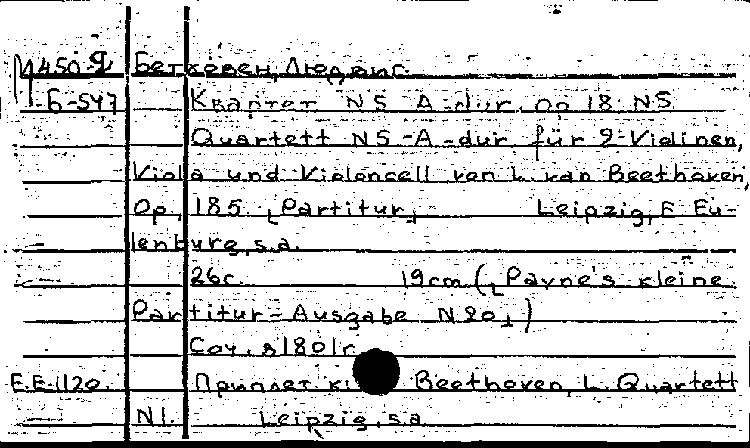 М450.2 Бетховен, Людвиг.
Б-547 Квартет N5 A-dur, op 18 N5
Quartett N5-A-dur für 2-Violinen,
Viola und Violoncell von L. van Beethoven,
Op, 185. [Partitur] Leipzig, E Eu-
lenburg, s.a.
26с. 19cm ([Payne's kleine
Partitur-Ausgabe N20])
Соч. в 1801г.
E.E-1120. Приплет к: Beethoven, L. Quartett
N1. Leipzig, s.a.